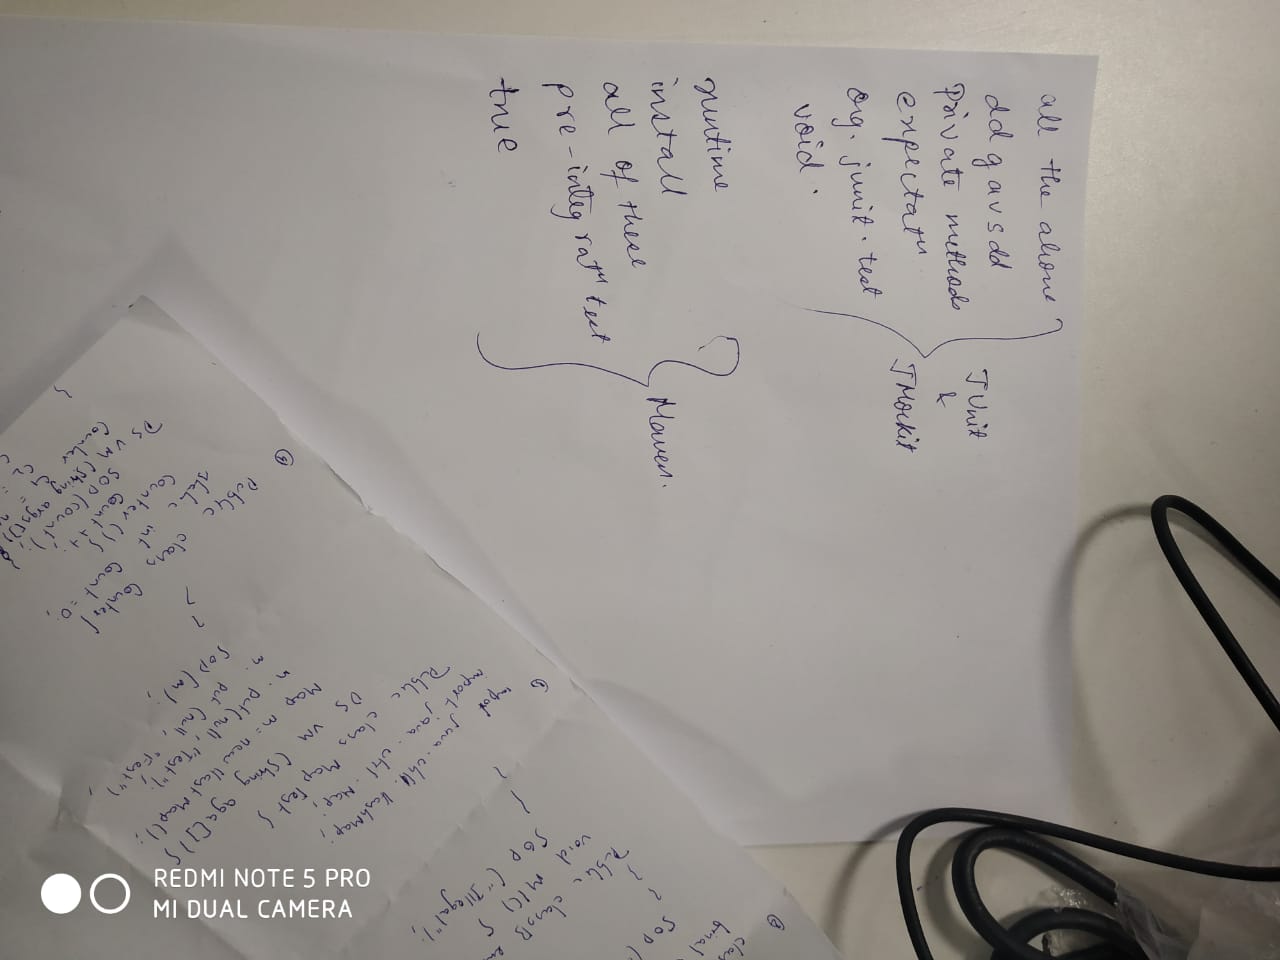 all the above
dd g av s dd
Private methods
expectatⁿ
org. junit. test
void.
JUnit
&
JMockit
runtime
install
all of these
pre-integratⁿ test
true
Maven.
clas
final
SOP (
}
}
Public class B
void M1() {
SOP ("Illegal");
}
}
import java.util.HashMap;
import java.util.Map;
Public class MapTest {
PS VM (String aga[]) {
Map m = new HashMap();
m. put(null, "Test");
m. put (null, "Fest");
SOP (m);
}
}
④
Public class Counter {
static int Count = 0;
Counter () {
Count ++;
SOP (count); }
PS VM (String args[])
Counter c1 =
c2 =
}
REDMI NOTE 5 PRO
MI DUAL CAMERA